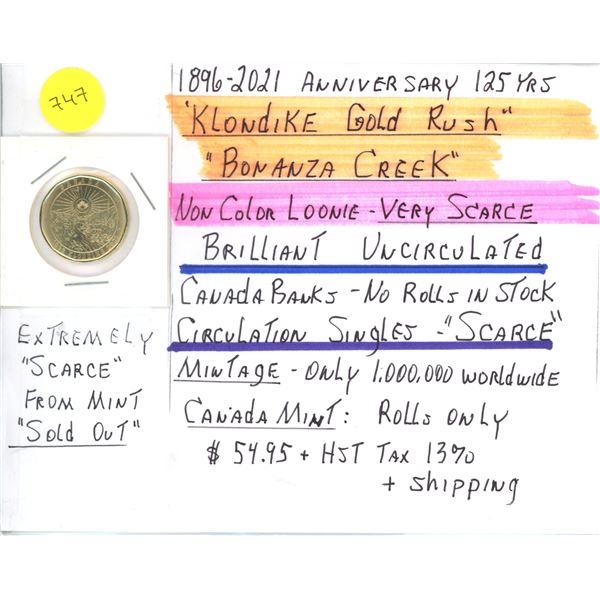 747
1896-2021 ANNIVERSARY 125 YRS
"KLONDIKE GOLD RUSH"
"BONANZA CREEK"
NON COLOR LOONIE - VERY SCARCE
BRILLIANT UNCIRCULATED
CANADA BANKS - NO ROLLS IN STOCK
CIRCULATION SINGLES - "SCARCE"
MINTAGE - ONLY 1,000,000 WORLDWIDE
CANADA MINT: ROLLS ONLY
$ 54.95 + HST TAX 13%
+ SHIPPING
EXTREMELY
"SCARCE"
FROM MINT
"SOLD OUT"